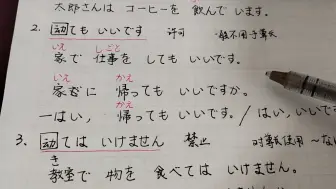 太郎さんは コーヒーを 飲んで います。
2. 動ても いいです 許可 一般不用于尊长
いえ しごと
家で 仕事を しても いいです
いえ かえ
家に 帰っても いいですか。
かえ
ーはい, 帰っても いいです。/はい, いいで
3. 動ては いけません 禁止 对尊长使用 ~な
き
教室で 物を 食べては いけません。